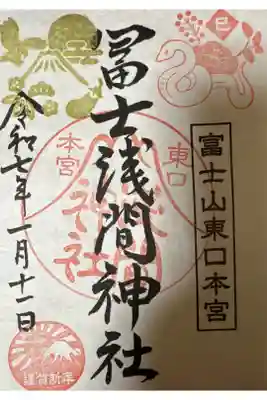 巳
富士山東口本宮
冨士浅間神社
東口
本宮
神社
令和七年一月十一日
謹賀新年